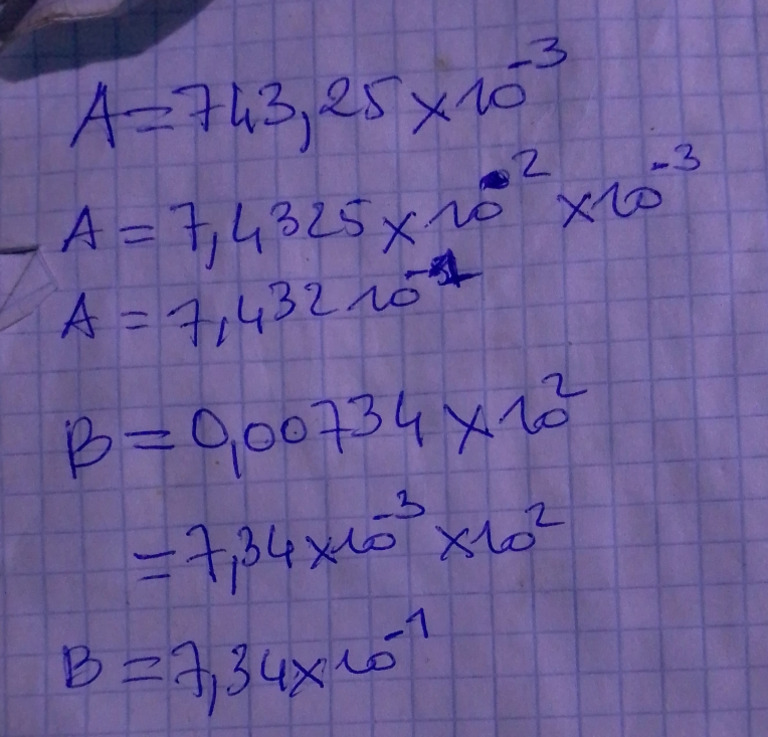 A = 743,25 × 10⁻³
A = 7,4325 × 10² × 10⁻³
A = 7,432 10⁻¹
B = 0,00734 × 10²
= 7,34 × 10⁻³ × 10²
B = 7,34 × 10⁻¹